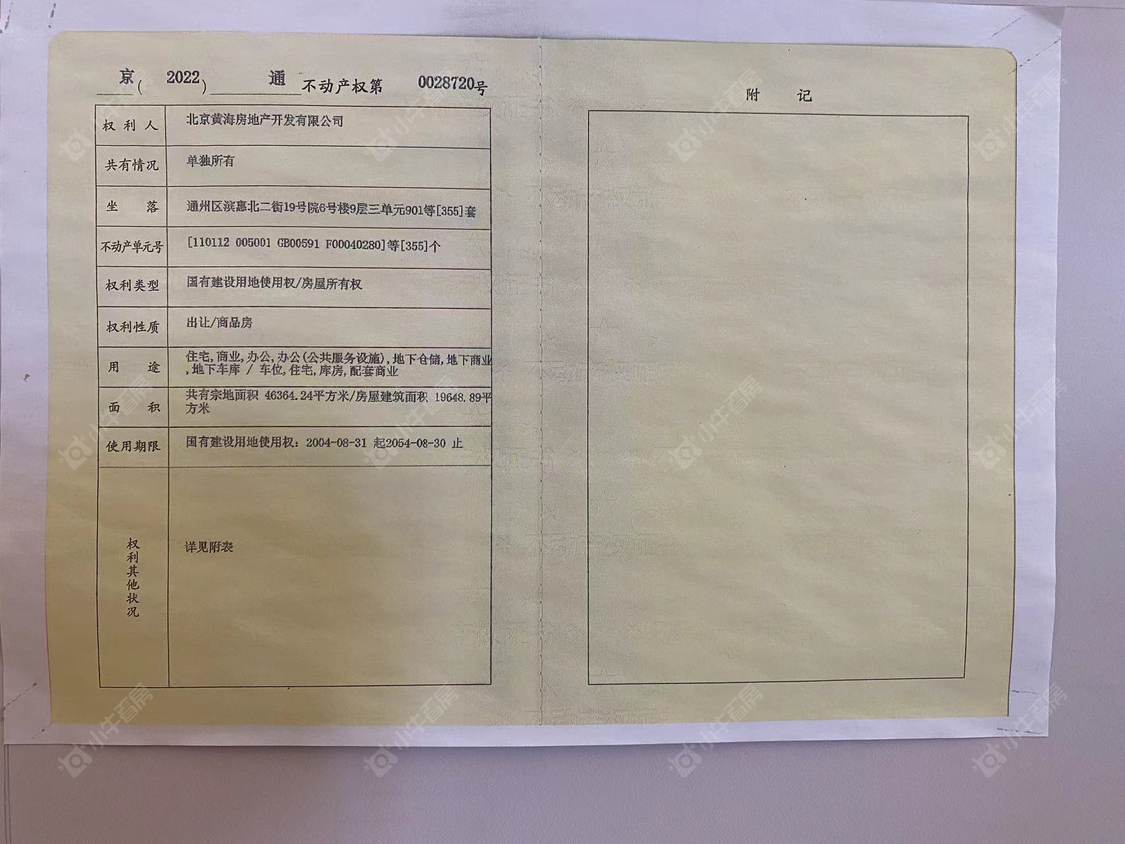 京(2022)通不动产权第0028720号
权利人 北京黄海房地产开发有限公司
共有情况 单独所有
坐落 通州区滨惠北二街19号院6号楼9层三单元901等[355]套
不动产单元号 [110112 005001 GB00591 F00040280]等[355]个
权利类型 国有建设用地使用权/房屋所有权
权利性质 出让/商品房
用途 住宅,商业,办公,办公(公共服务设施),地下仓储,地下商业
,地下车库 / 车位,住宅,库房,配套商业
面积 共有宗地面积 46364.24平方米/房屋建筑面积 19648.89平
方米
使用期限 国有建设用地使用权: 2004-08-31 起2054-08-30 止
权利其他状况 详见附表
附记
小牛看房
小牛看房
小牛看房
小牛看房
小牛看房
小牛看房
小牛看房
小牛看房
小牛看房
小牛看房
小牛看房
小牛看房